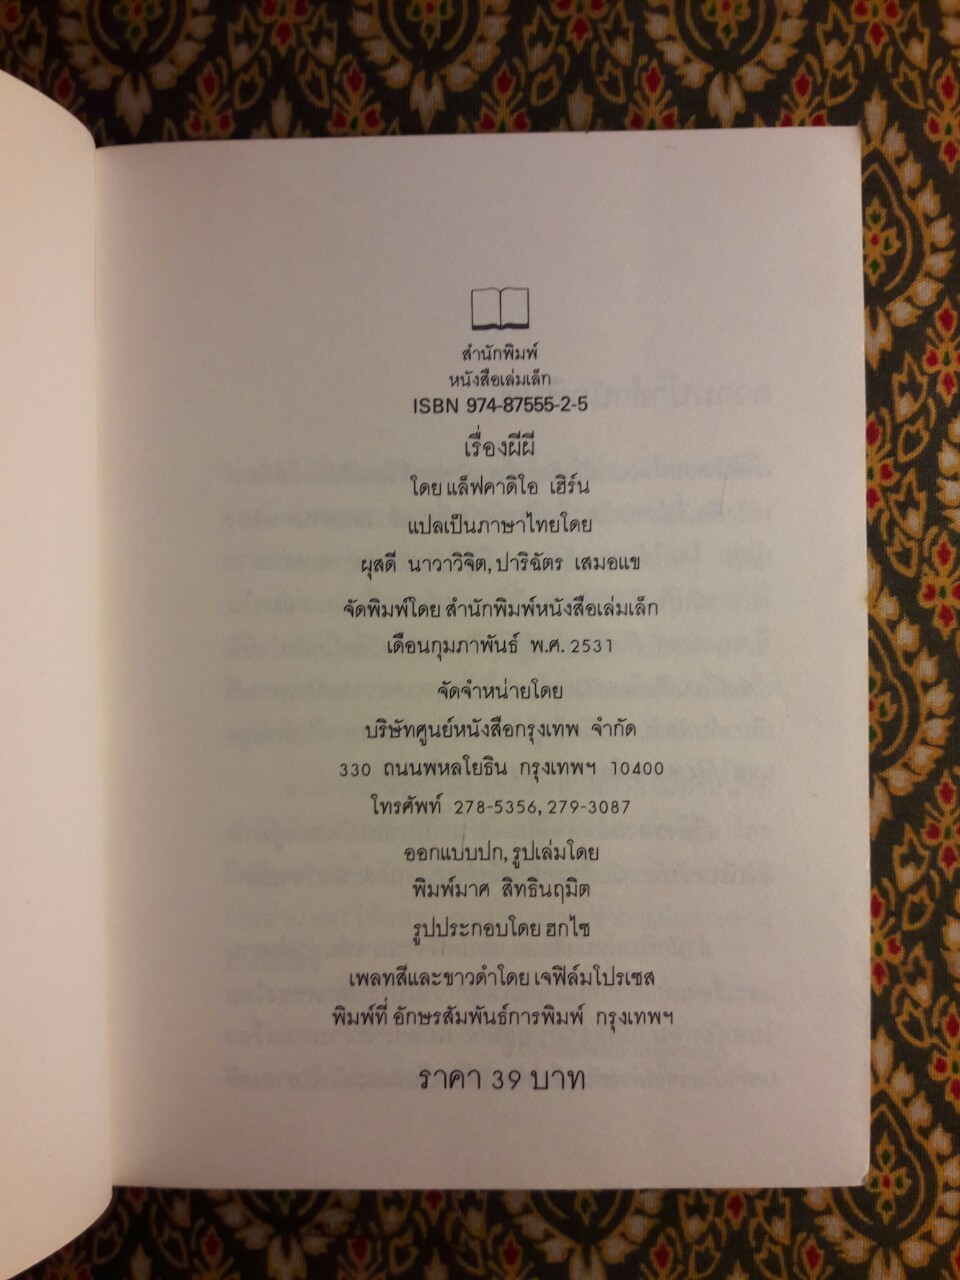 สำนักพิมพ์
หนังสือเล่มเล็ก
ISBN 974-87555-2-5
เรื่องผีผี
โดย แล็ฟคาดิโอ เฮิร์น
แปลเป็นภาษาไทยโดย
ผุสดี นาวาวิจิต, ปาริฉัตร เสมอแข
จัดพิมพ์โดย สำนักพิมพ์หนังสือเล่มเล็ก
เดือนกุมภาพันธ์ พ.ศ. 2531
จัดจำหน่ายโดย
บริษัทศูนย์หนังสือกรุงเทพ จำกัด
330 ถนนพหลโยธิน กรุงเทพฯ 10400
โทรศัพท์ 278-5356, 279-3087
ออกแบบปก, รูปเล่มโดย
พิมพ์มาศ สิทธินฤมิต
รูปประกอบโดย ฮกไซ
เพลทสีและขาวดำโดย เจฟิล์มโปรเซส
พิมพ์ที่ อักษรสัมพันธ์การพิมพ์ กรุงเทพฯ
ราคา 39 บาท